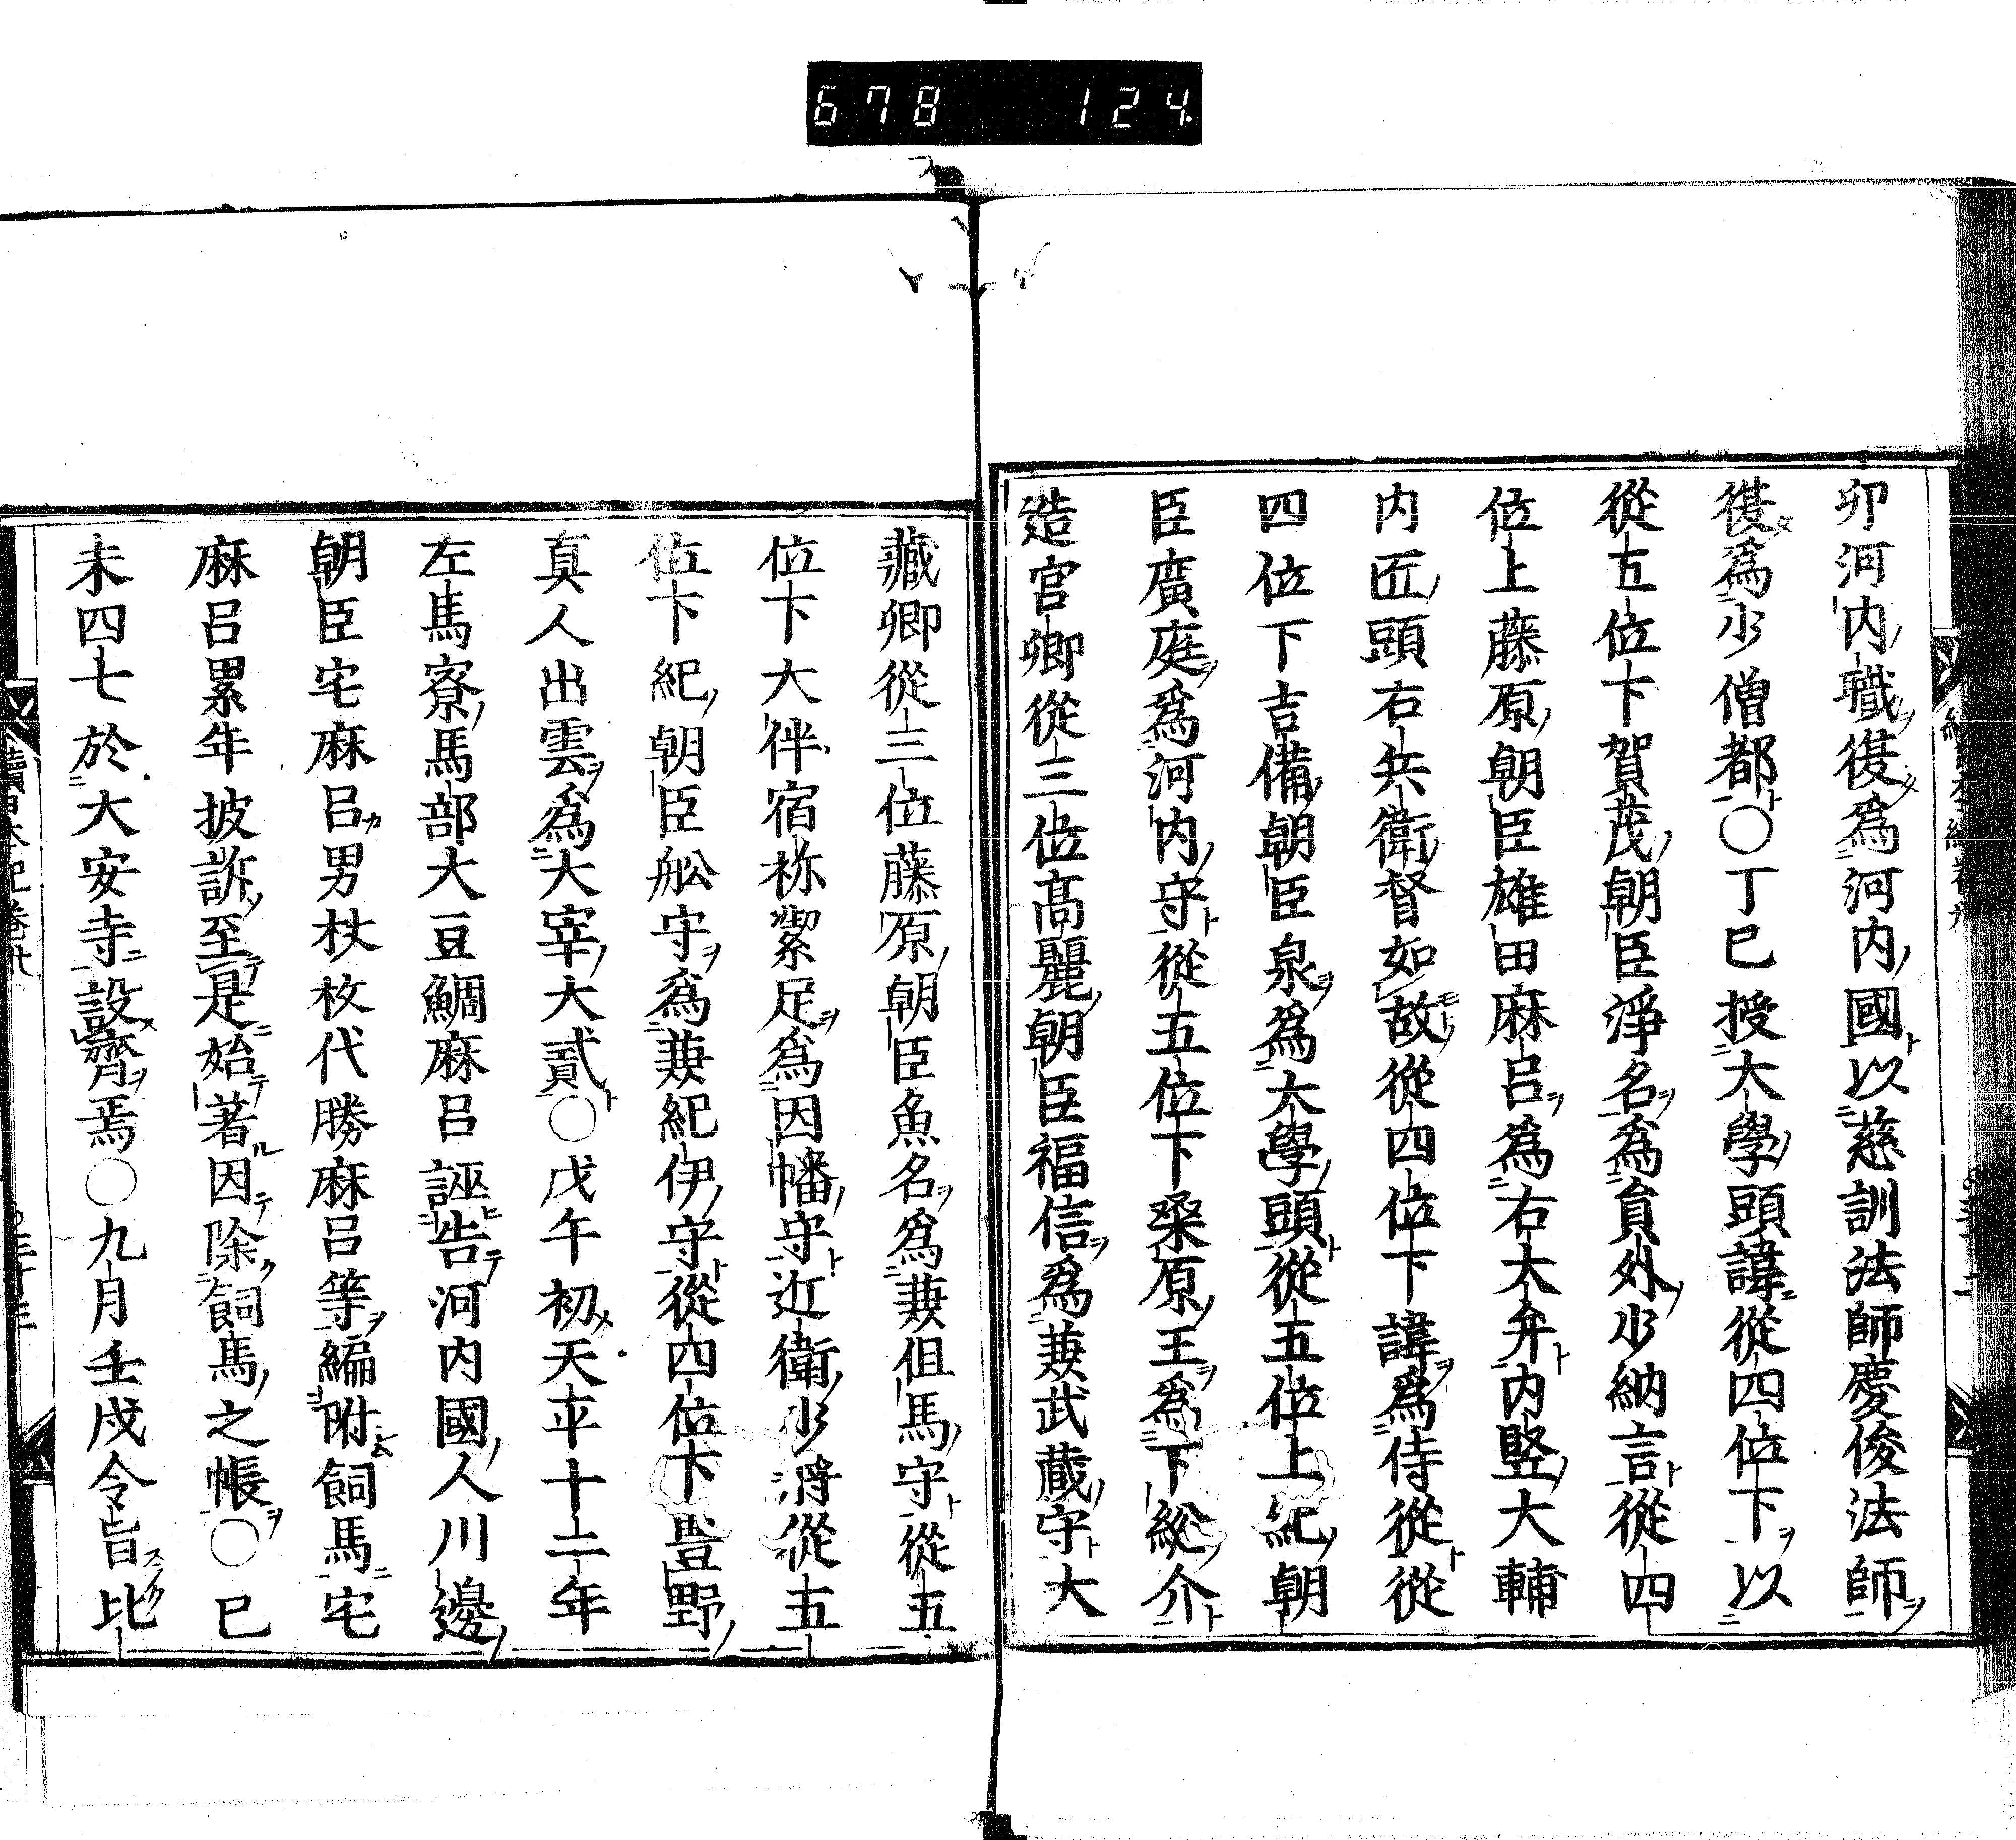 678 124
卯河内職復爲河内國以慈訓法師慶俊法師
復爲少僧都○丁巳授大學頭諱從四位下以
從五位下賀茂朝臣淨名爲員外少納言從四
位上藤原朝臣雄田麻呂爲右大弁内竪大輔
内匠頭右兵衛督如故從四位下諱爲侍從從
四位下吉備朝臣泉爲大學頭從五位上紀朝
臣廣庭爲河内守從五位下桑原王爲下総介
造宮卿從三位髙麗朝臣福信爲兼武蔵守大
藏卿從三位藤原朝臣魚名爲兼伹馬守從五
位下大伴宿祢潔足爲因幡守近衛少将從五
位下紀朝臣舩守爲兼紀伊守從四位下豊野
真人出雲爲大宰大貳○戊午初天平十二年
左馬寮馬部大豆鯛麻呂誣告河内國人川邊
朝臣宅麻呂男杖枚代勝麻呂等編附飼馬宅
麻呂累年披訴至是始著因除飼馬之帳○巳
未四七於大安寺設齋焉○九月壬戌令旨比
續日本紀巻卅